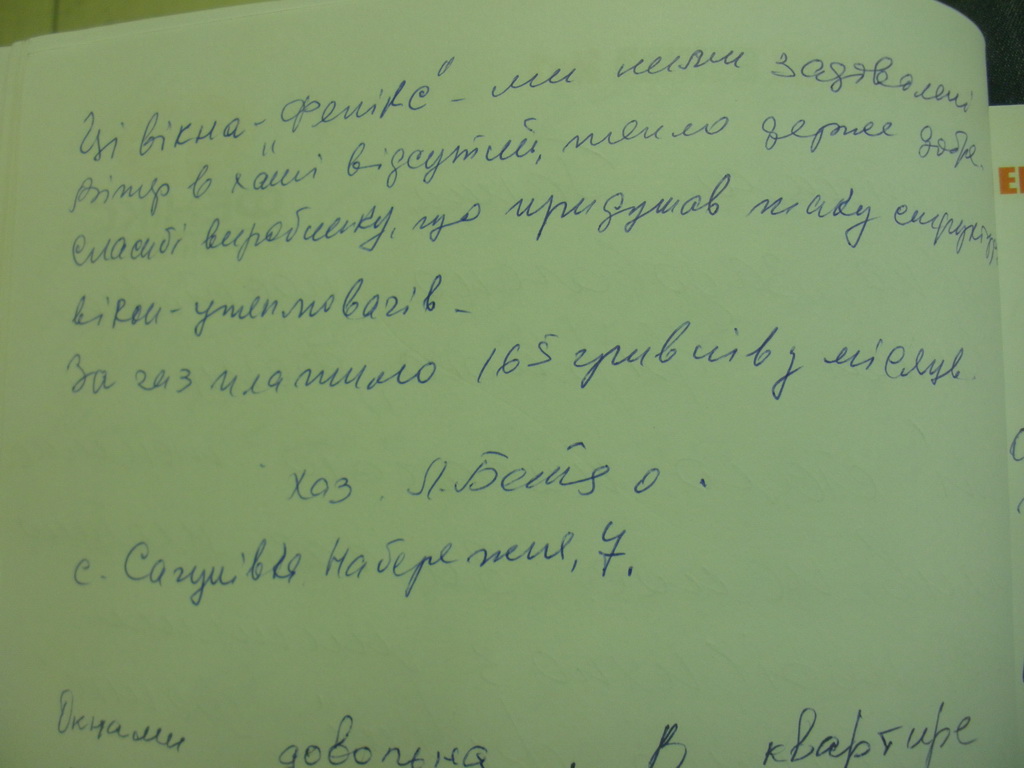 Ці вікна - „Фенікс" - ми ними задоволені
Вітер в хаті відсутній, тепло держе добре.
Спасибі виробнику, що придумав таку
вікон-утеплювачів -
За газ платило 165 гривнів у місяць.
хаз. Л.
с. Сагунівка Набережня, 7.
Окнами довольна. В квартире